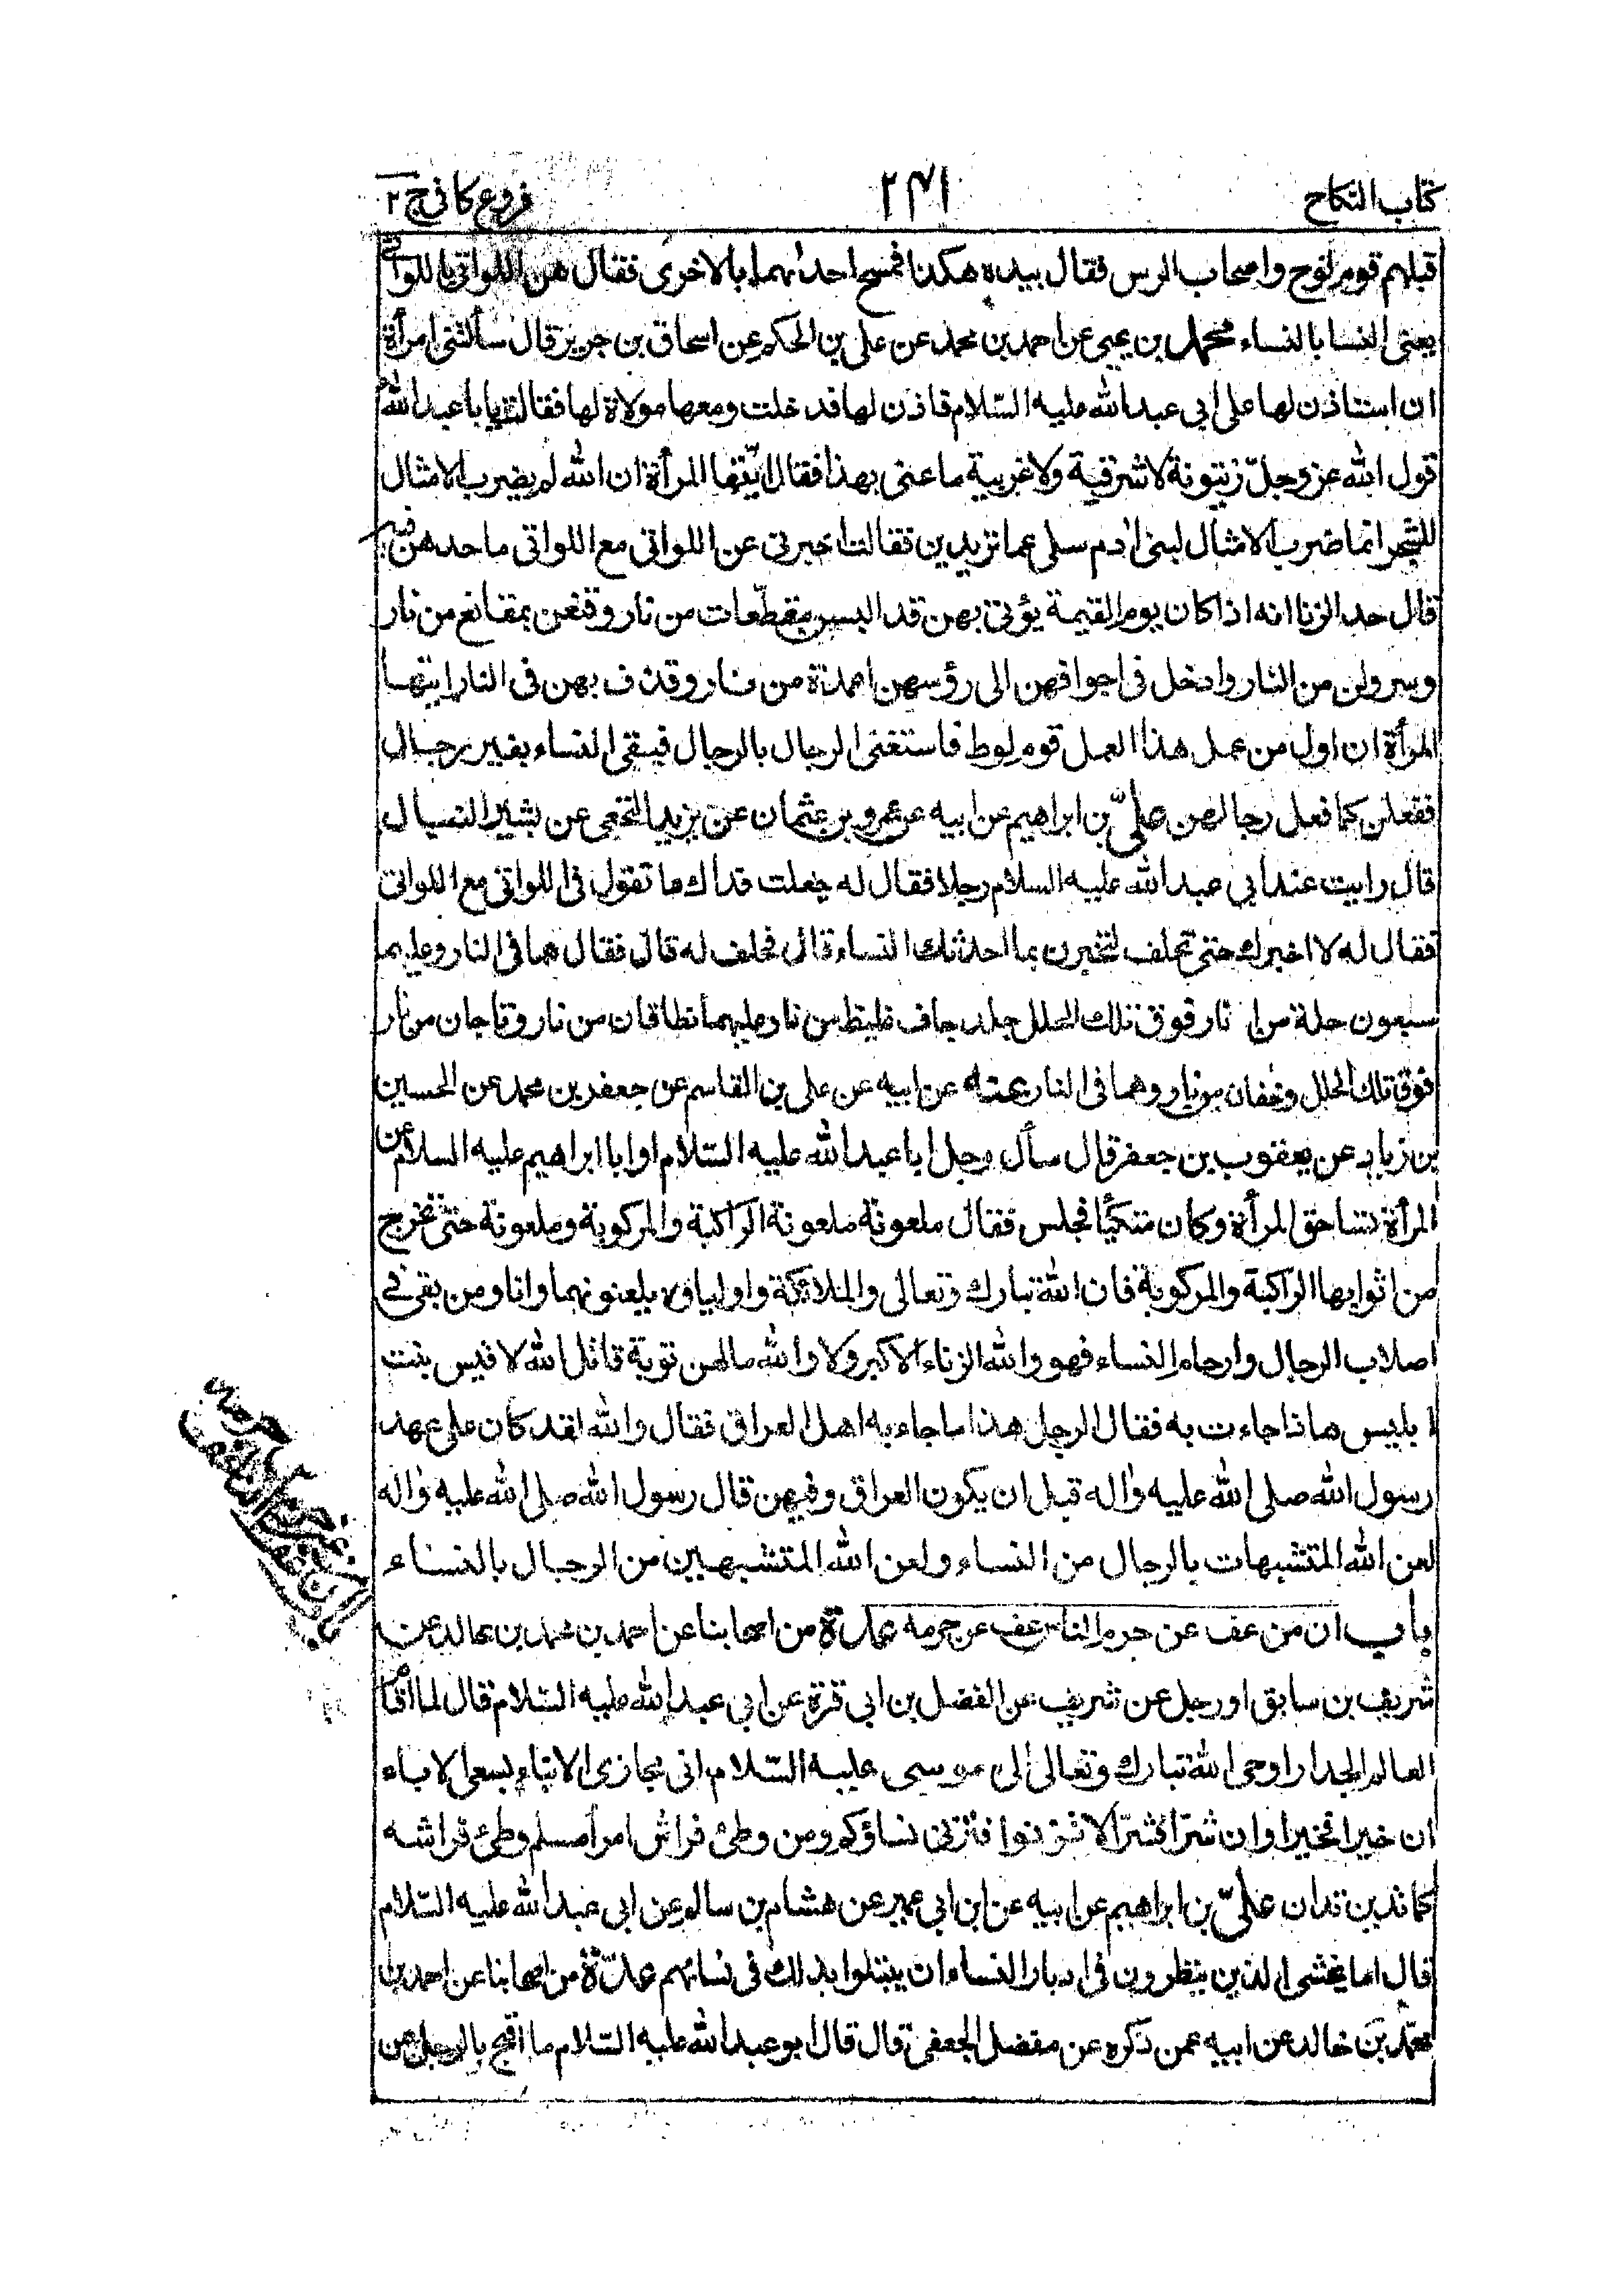 كتاب النكاح ٢٣١ فروع كافى ج ٢
قبلهم قوم نوح واصحاب الرس فقال بيده هكذا فمسح احداهما بالاخرى فقال هن اللواتى باللواتى
يعنى النسا بالنساء محمد بن يحيى عن احمد بن محمد عن على بن الحكم عن اسحاق بن جرير قال سألتنى امرأة
ان استاذن لها على ابى عبدالله عليه السّلام فاذن لها فدخلت ومعها مولاة لها فقالت يا با عبدالله
قول الله عز وجلّ زيتونة لا شرقية ولا غربية ما عنى بهذا فقال ايّتها المرأة ان الله لم يضرب الامثال
للشجر انما ضرب الامثال لبنى ادم سلى عما تريدين فقالت اخبرنى عن اللواتى مع اللواتى ما حدهن فيه
قال حد الزنا انه اذا كان يوم القيمة يؤتى بهن قد البسن مقطّعات من نار وقنعن بمقانع من نار
وسرولن من النار وادخل فى اجوافهن الى رؤسهن اعمدة من نار وقذف بهن فى النار ايتها
المرأة ان اول من عمل هذا العمل قوم لوط فاستغنى الرجال بالرجال فبقى النساء بغير رجال
ففعلن كما فعل رجالهن علىّ بن ابراهيم عن ابيه عن عمرو بن عثمان عن يزيد النخعى عن بشير النبال
قال رايت عند ابى عبد الله عليه السلام رجلا فقال له جعلت فداك ما تقول فى اللواتى مع اللواتى
فقال له لا اخبرك حتى تحلف لتخبرن بما احدثك النساء قال فحلف له قال فقال هما فى النار وعليهما
سبعون حلة من نار فوق تلك الحلل جلد جاف غليظ من نار عليهما نطاقان من نار وتاجان من نار
فوق تلك الحلل وخفان من نار وهما فى النار عنه عن ابيه عن على بن القاسم عن جعفر بن محمد عن الحسين
بن زياد عن يعقوب بن جعفر قال سأل رجل ابا عبد الله عليه السّلام او ابا ابراهيم عليه السلام عن
المرأة تساحق المرأة وكان متكئًا فجلس فقال ملعونة ملعونة الراكبة والمركوبة وملعونة حتى تخرج
من اثوابها الراكبة والمركوبة فان الله تبارك وتعالى والملائكة واولياؤه يلعنونهما وانا ومن بقى فى
اصلاب الرجال وارحام النساء فهو والله الزناء الاكبر ولا والله ما لهن توبة قاتل الله لاقيس بنت
ابليس ماذا جاءت به فقال الرجل هذا ما جاء به اهل العراق فقال والله لقد كان على عهد
رسول الله صلى الله عليه واله قبل ان يكون العراق وفيهن قال رسول الله صلى الله عليه واله
لعن الله المتشبهات بالرجال من النساء ولعن الله المتشبهين من الرجال بالنساء
باب ان من عف عن حرم الناس عف عن حرمه عدة من اصحابنا عن احمد بن محمد بن خالد عن
شريف بن سابق او رجل عن شريف عن الفضل بن ابى قرة عن ابى عبد الله عليه السّلام قال لما اقام
العالم الجدار اوحى الله تبارك وتعالى الى موسى عليه السّلام انى مجازى الابناء بسعى الاباء
ان خيرا فخيرا وان شرّا فشرّا لا تزنوا فتزنى نساؤكم ومن وطئ فراش امرأ مسلم وطئ فراشه
كما تدين تدان علىّ بن ابراهيم عن ابيه عن ابن ابى عمير عن هشام بن سالم عن ابى عبد الله عليه السّلام
قال اما يخشى الذين ينظرون فى ادبار النساء ان يبتلوا بذلك فى نسائهم عدّة من اصحابنا عن احمد بن
محمد بن خالد عن ابيه عمن ذكره عن مفضل الجعفى قال قال ابو عبد الله عليه السّلام ما اقبح بالرجل من